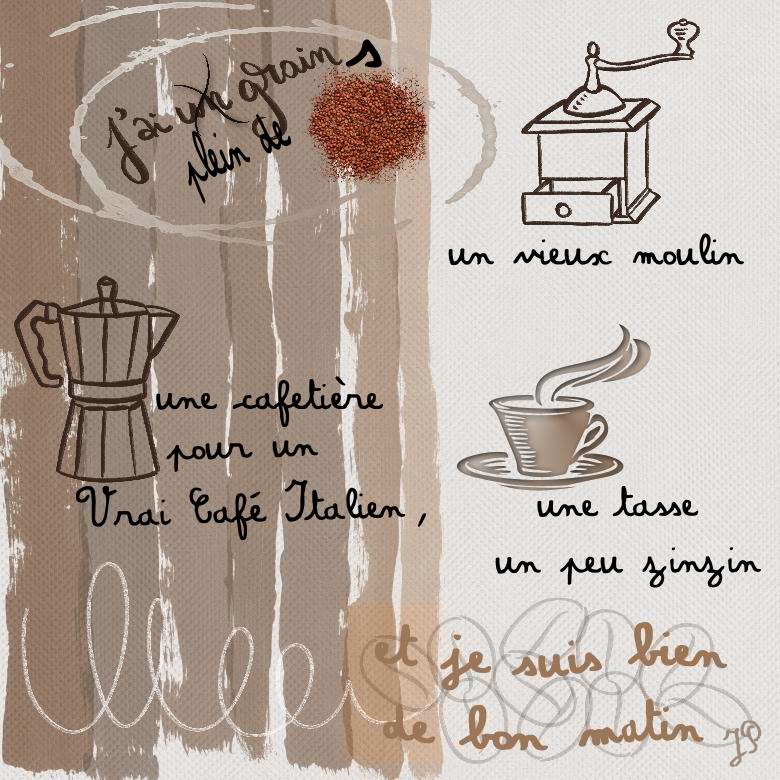 J'ai un grain s
plein de
un vieux moulin
une cafetière
pour un
Vrai Café Italien,
une tasse
un peu zinzin
et je suis bien
de bon matin